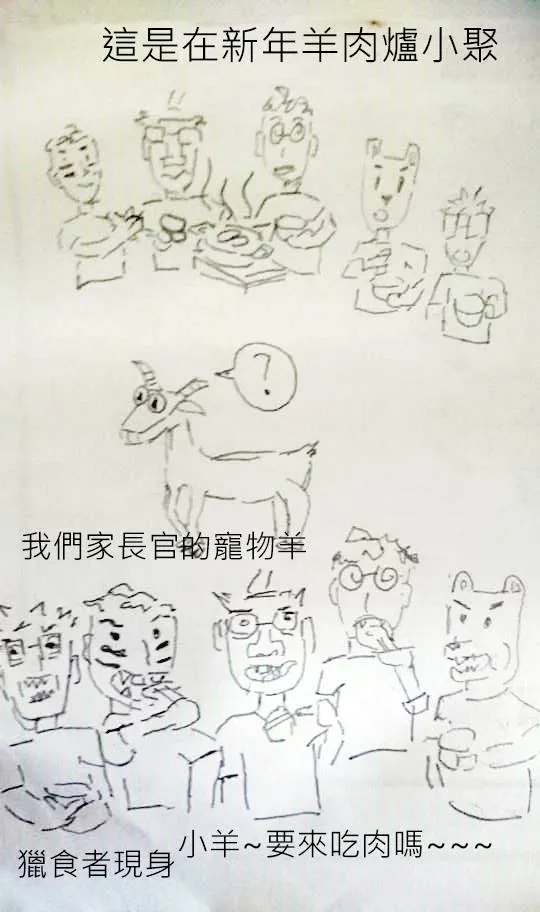 這是在新年羊肉爐小聚
?
我們家長官的寵物羊
小羊~要來吃肉嗎~~~
獵食者現身